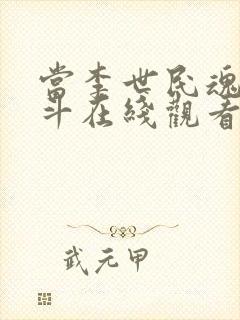 當李世民魂
斗在綫觀看
武元甲